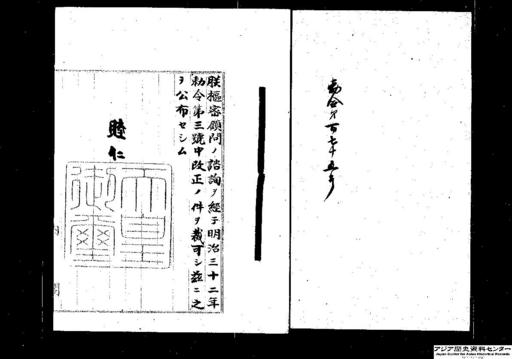 勅令第百七十五号
朕樞密顧問ノ諮詢ヲ經テ明治三十二年
勅令第三號中改正ノ件ヲ裁可シ茲ニ之
ヲ公布セシム
睦仁
天皇
御璽
アジア歴史資料センター
Japan Center for Asian Historical Records